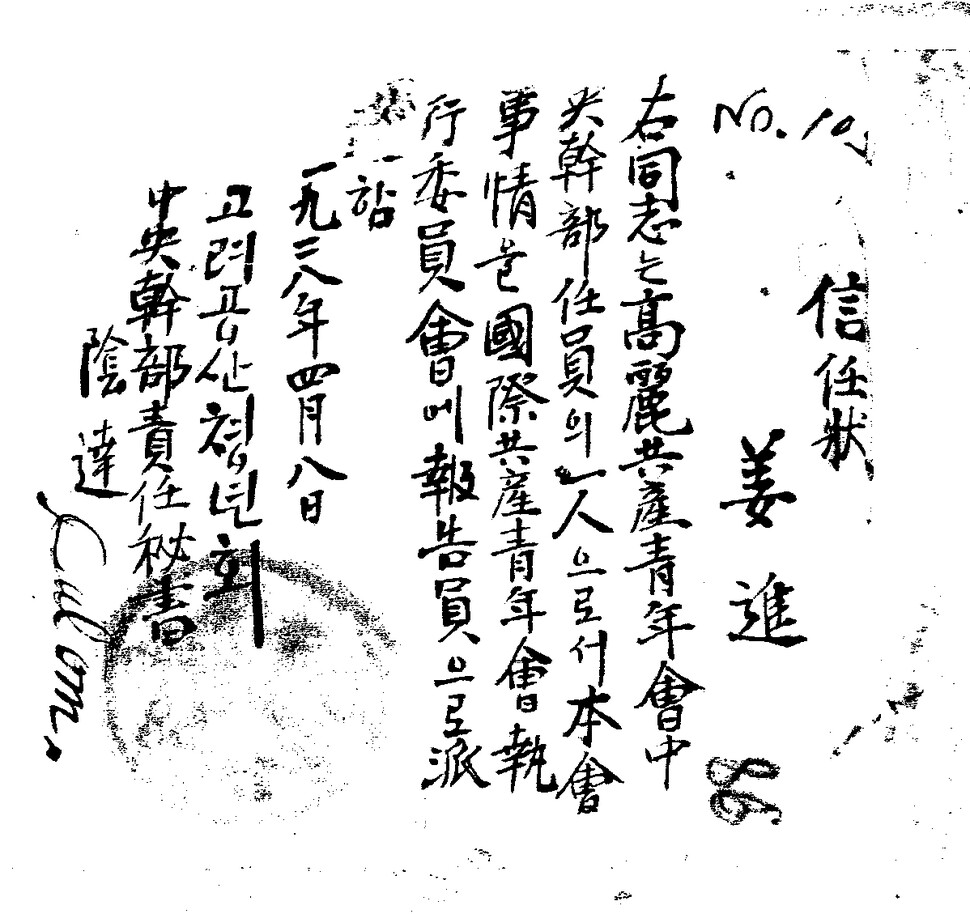 No. 10.
信任狀
姜進
右同志는高麗共產青年會中
央幹部任員의一人으로서本會
事情을國際共產青年會執
行委員會에報告員으로派
함
一九二八年四月八日
고려공산청년회
中央幹部責任秘書
陰達